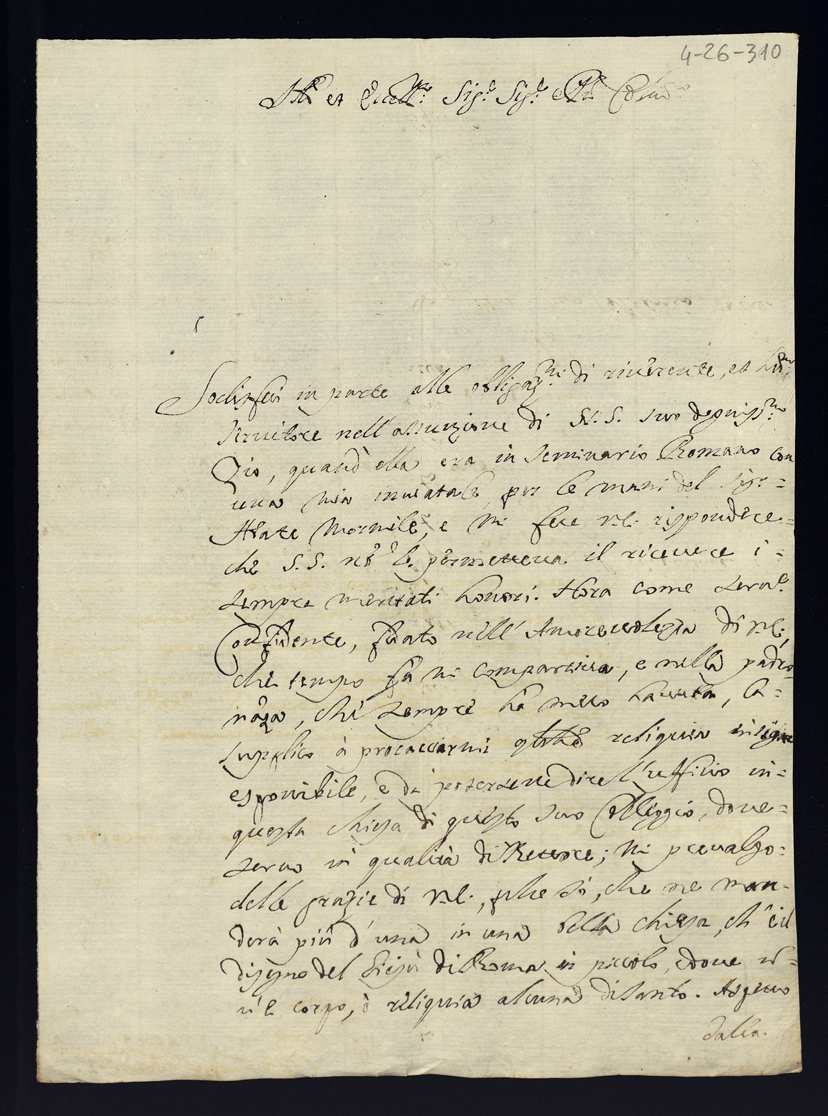 4-26-310
Ill.mo et Eccell.mo Sig.r Sig.r P.ron Col.mo
Sodisfeci in parte alle obligaz.ni di riverente, et hu.mo
servitore nell'assunzione di N.S. suo degniss.mo
Zio, quand'ella era in Seminario Romano con
una mia inviatale per le mani del Sig.r
Abate Mormile, e mi fece V.E. rispondere
che S.S. nō le permetteva il ricevere i
sempre meritati honori. Hora come serv.e
Confidente, fidato nell'Amorevolezza di V.E.
che tempo fa mi compartiva, e nella padro-
nāza, che sempre hà meco havuta, la
supplico à procacciarmi qlche reliquia insigne
esponibile, e da potersene dire l'uffitio in
questa chiesa di questo suo Colleggio, dove
servo in qualità di Rettore; Mi prevalgo
delle grazie di V.E., che sò, che me man-
derà più d'una in una bella chiesa, ch'è il
disegno del Giesù di Roma in piccolo, e dove n-
v'è corpo, ò reliquia alcuna di Santo. Aspetto
dalla